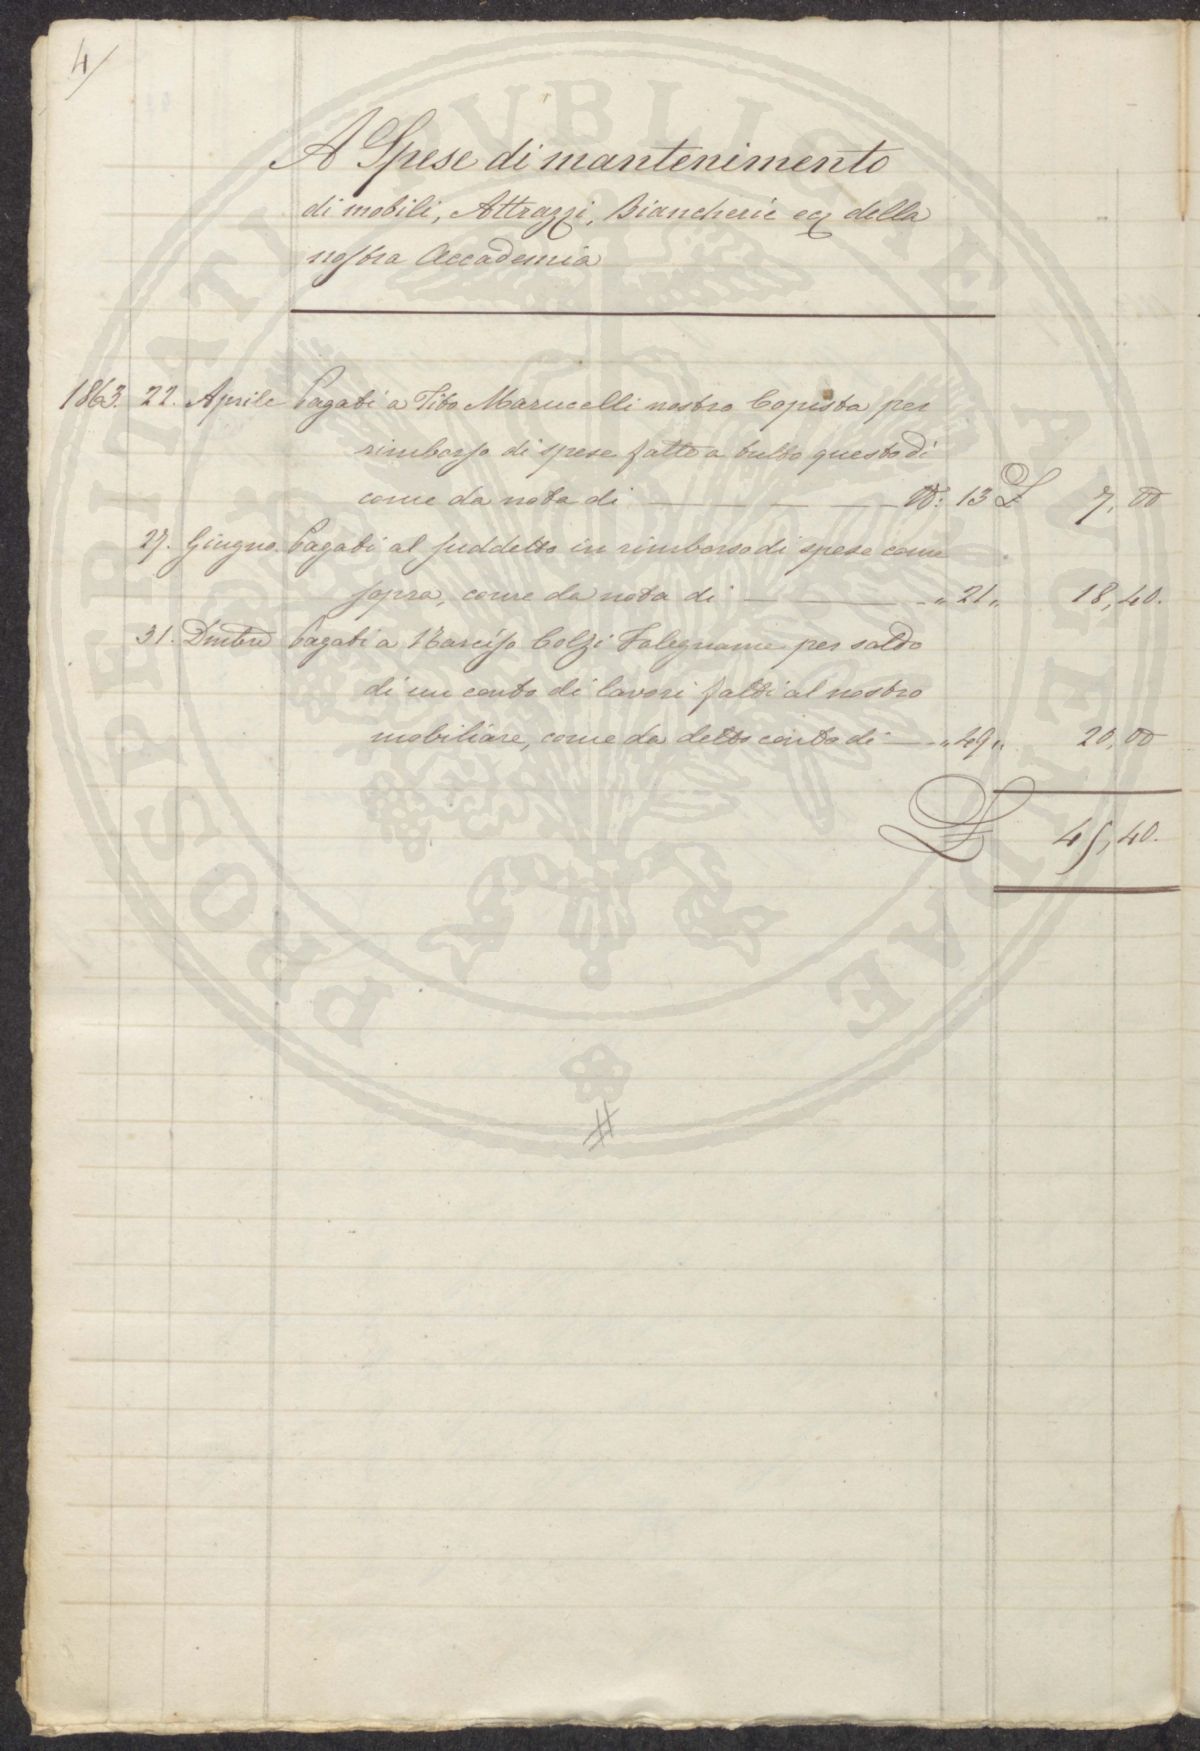 4/
A Spese di mantenimento
di mobili, Attrazzi, Biancherie ecc della
nostra Accademia
1863. 22. Aprile Pagati a Tito Marucelli nostro Copista per
rimborso di spese fatte a tutto questo dì
come da nota di — N: 13 £ 7,00
27. Giugno. Pagati al suddetto in rimborso di spese come
sopra, come da nota di — " 21 " 18,40.
31. Dmbre Pagati a Narciso Colzi Falegname per saldo
di un conto di lavori fatti al nostro
mobiliare, come da detto conto di — " 49 " 20,00
£ 45,40.
#
PROSPERITATI PVBLICAE AVGENDAE